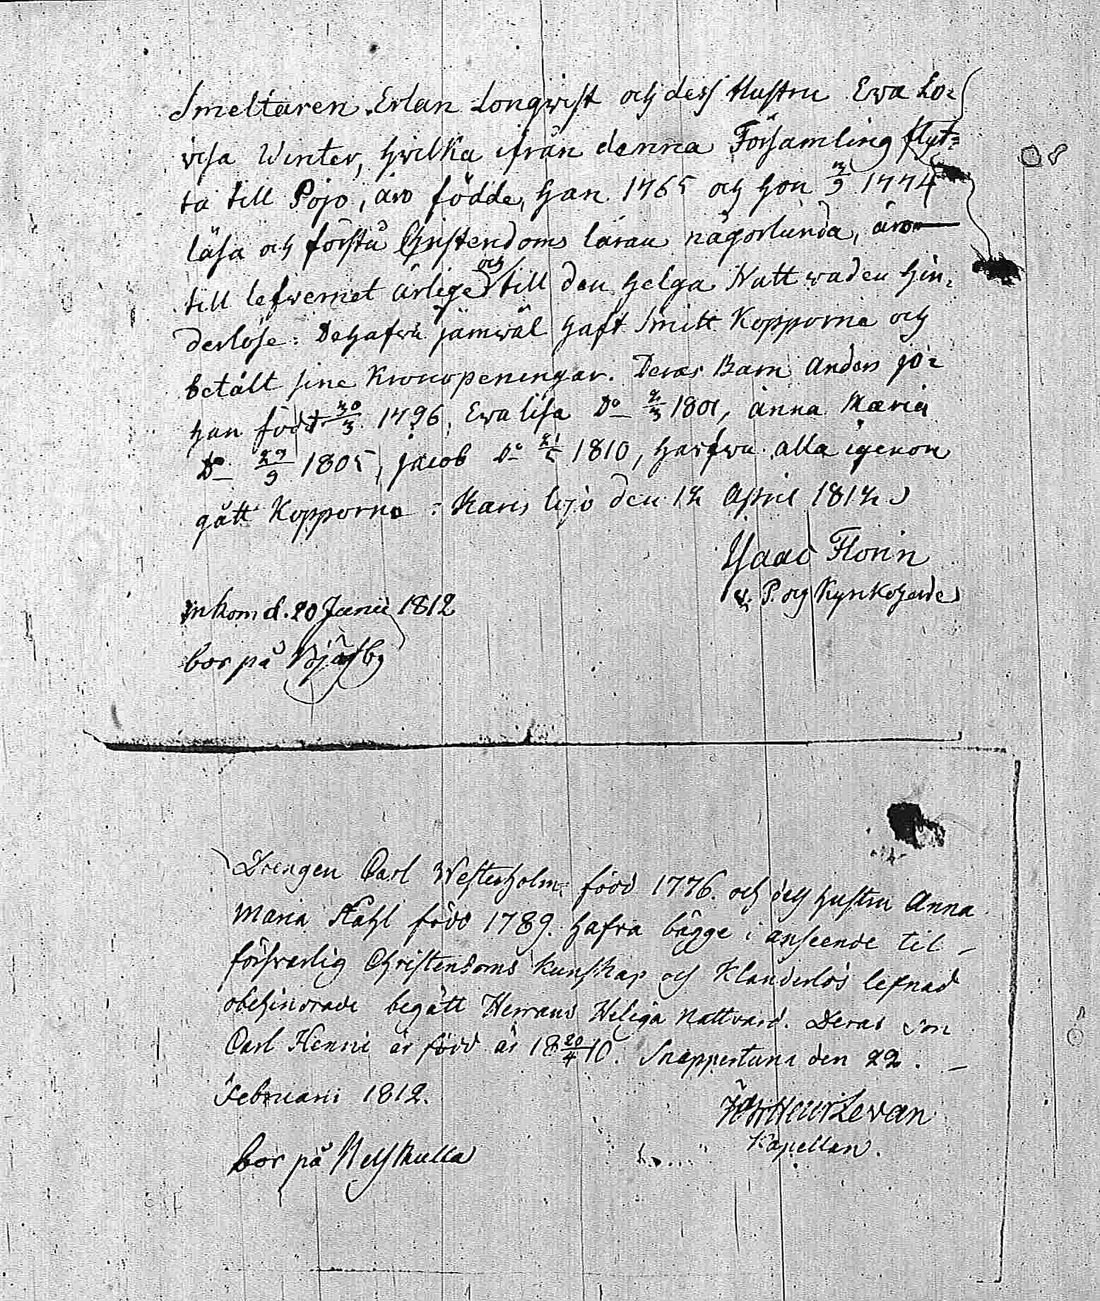 Smeltaren Erlan Lonqwist och dess Hustru Ewa Lo-
visa Winter, hvilka ifrån denna Församling flyt-
ta till Pojo, äro födde, han 1765 och hon 3/9 1774
läsa och förstå Christendoms läran någorlunda, äro
till lefvernet ärlige och till den helga Nattvarden hin-
derlöse: De hafva jämwäl haft Smitt Kopporne och
betalt sine Kronopeningar. Deras Barn Anders Jo-
han född 30/3 1796, Ewa Lisa Do 2/3 1801, Anna Maria
Do 29/9 1805, Jacob Do 21/5 1810, hafwa alla igenom
gått Kopporne: Karis Lojo den 12 April 1812
Isaac Florin
v. P. och Kyrkoherde
Inkom d. 20 Junii 1812
bor på
Drengen Carl Westerholm född 1776. och dess hustru Anna
Maria Stahl född 1789. hafva bägge i anseende til
försvarlig Christendoms kunskap och Klanderlös lefnad
obehindrade begått Herrans Heliga Nattvard. Deras son
Carl Henric är född år 18 20/4 10. Snappertuna den 22.
Februarii 1812.
Kapellan.
bor på